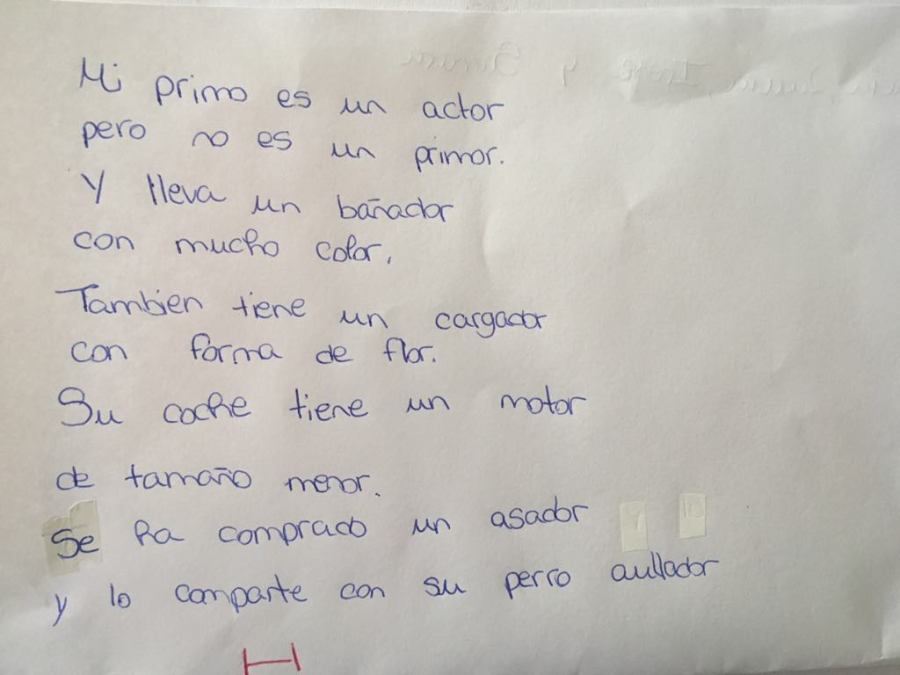 Mi primo es un actor
pero no es un primor.
Y lleva un bañador
con mucho color.
Tambien tiene un cargador
con forma de flor.
Su coche tiene un motor
de tamaño menor.
Se ha comprado un asador
y lo comparte con su perro aullador
H